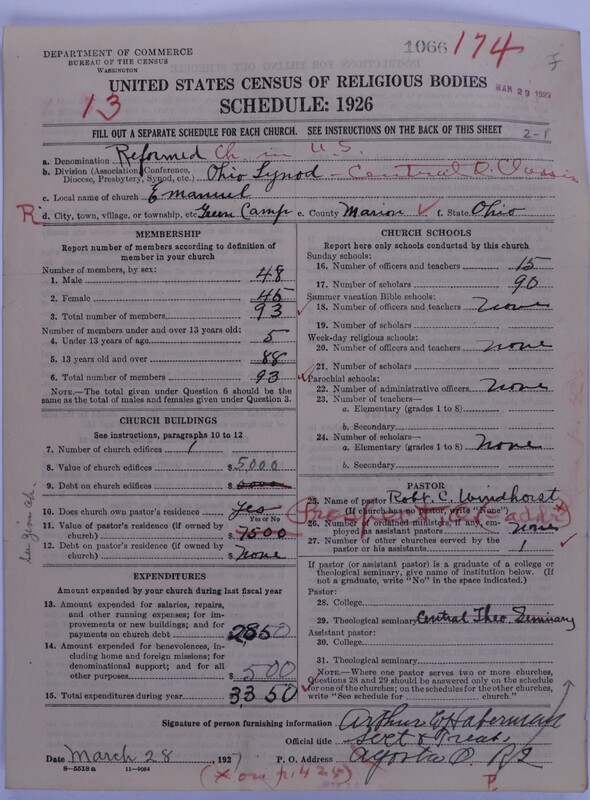 DEPARTMENT OF COMMERCE
BUREAU OF THE CENSUS
WASHINGTON
1066 174
MAR 29 1927
UNITED STATES CENSUS OF RELIGIOUS BODIES
13
SCHEDULE: 1926
FILL OUT A SEPARATE SCHEDULE FOR EACH CHURCH. SEE INSTRUCTIONS ON THE BACK OF THIS SHEET
2-1
a. Denomination Reformed Ch. in U.S.
b. Division (Association, Conference, Diocese, Presbytery, Synod, etc.) Ohio Synod - Central O. Classis
c. Local name of church Emanuel
R d. City, town, village, or township, etc. Green Camp e. County Marion f. State Ohio
MEMBERSHIP
Report number of members according to definition of member in your church
Number of members, by sex:
1. Male 48
2. Female 45
3. Total number of members 93
Number of members under and over 13 years old:
4. Under 13 years of age 5
5. 13 years old and over 88
6. Total number of members 93
NOTE.—The total given under Question 6 should be the same as the total of males and females given under Question 3.
CHURCH BUILDINGS
See instructions, paragraphs 10 to 12
7. Number of church edifices 1
8. Value of church edifices $ 5000
9. Debt on church edifices $
10. Does church own pastor's residence yes
Yes or No
11. Value of pastor's residence (if owned by church) $ 7500
12. Debt on pastor's residence (if owned by church) $ None
EXPENDITURES
Amount expended by your church during last fiscal year
13. Amount expended for salaries, repairs, and other running expenses; for improvements or new buildings; and for payments on church debt 2850
14. Amount expended for benevolences, including home and foreign missions; for denominational support; and for all other purposes $ 500
15. Total expenditures during year $ 3350
CHURCH SCHOOLS
Report here only schools conducted by this church
Sunday schools:
16. Number of officers and teachers 15
17. Number of scholars 90
Summer vacation Bible schools:
18. Number of officers and teachers none
19. Number of scholars
Week-day religious schools:
20. Number of officers and teachers none
21. Number of scholars
Parochial schools:
22. Number of administrative officers none
23. Number of teachers—
a. Elementary (grades 1 to 8)
b. Secondary
24. Number of scholars—
a. Elementary (grades 1 to 8) none
b. Secondary
PASTOR
25. Name of pastor Robt. C. Windhorst
(If church has no pastor, write "None")
Prospect (addr)
26. Number of ordained ministers, if any, employed as assistant pastors none
27. Number of other churches served by the pastor or his assistants 1
If pastor (or assistant pastor) is a graduate of a college or theological seminary, give name of institution below. (If not a graduate, write "No" in the space indicated.)
Pastor:
28. College
29. Theological seminary Central Theo Seminary
Assistant pastor:
30. College
31. Theological seminary
NOTE.—Where one pastor serves two or more churches, Questions 28 and 29 should be answered only on the schedule for one of the churches; on the schedules for the other churches, write "See schedule for church."
Signature of person furnishing information Arthur C. Haberman
Official title Sect & Treas.
Date March 28, 1927 P. O. Address Agosta O. R2
8-5518a 11-9084
(x on p. 425)
P.